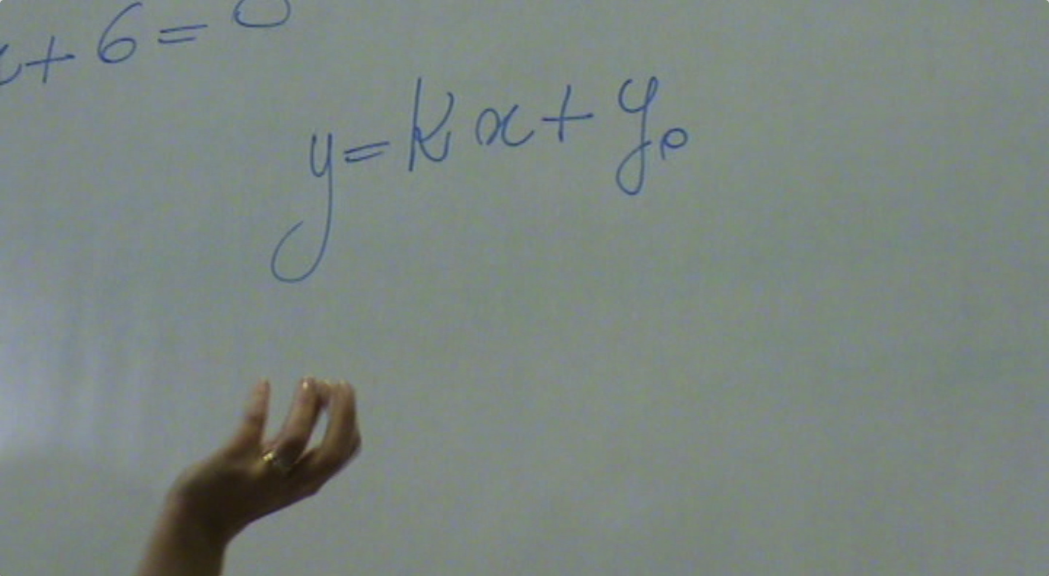 x + 6 = 0
y = kx + y₀